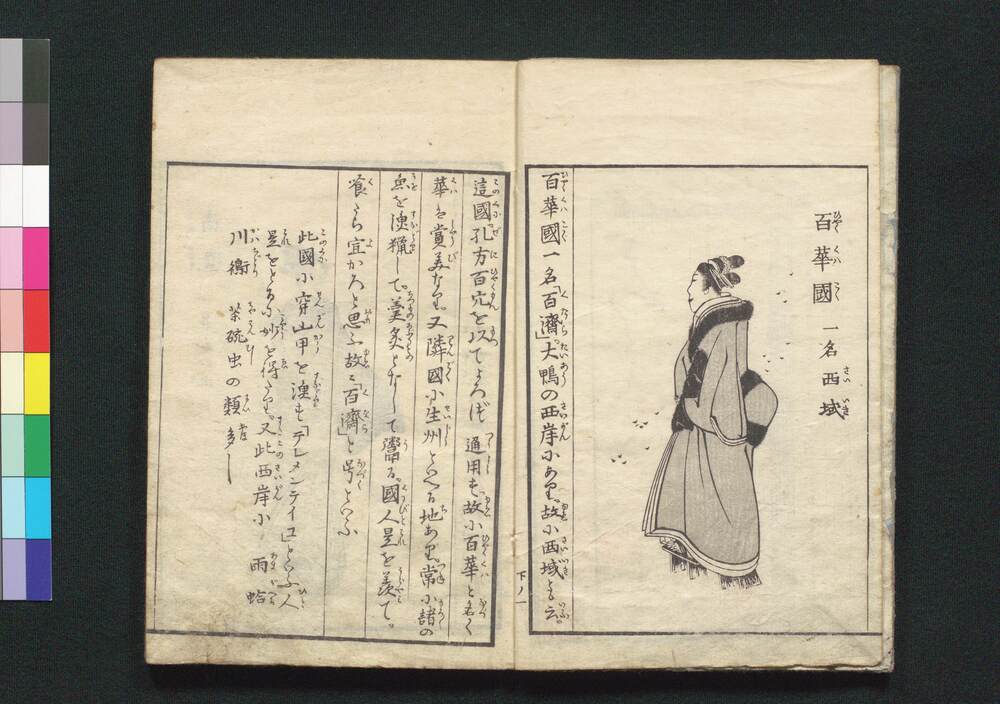 百華國 一名西域
百華國一名「百濟」大鴨の西岸にあり。故に西域とも云。
這國孔方百穴を以てよろづ通用す。故に百華と名く
華を賞美なり。又隣國に生州といへる地あり。常に諸の
魚を漁猟して。羹炙となして鬻る。國人是を羨て。
喰たら宜かろと思ふ故に「百濟」と号といふ
此國に穿山甲を漁も「テレメンテイコ」といふ人
是をとるに妙を得たり。又此西岸に雨蛤
川衞 茶碗虫の類多し
下ノ一